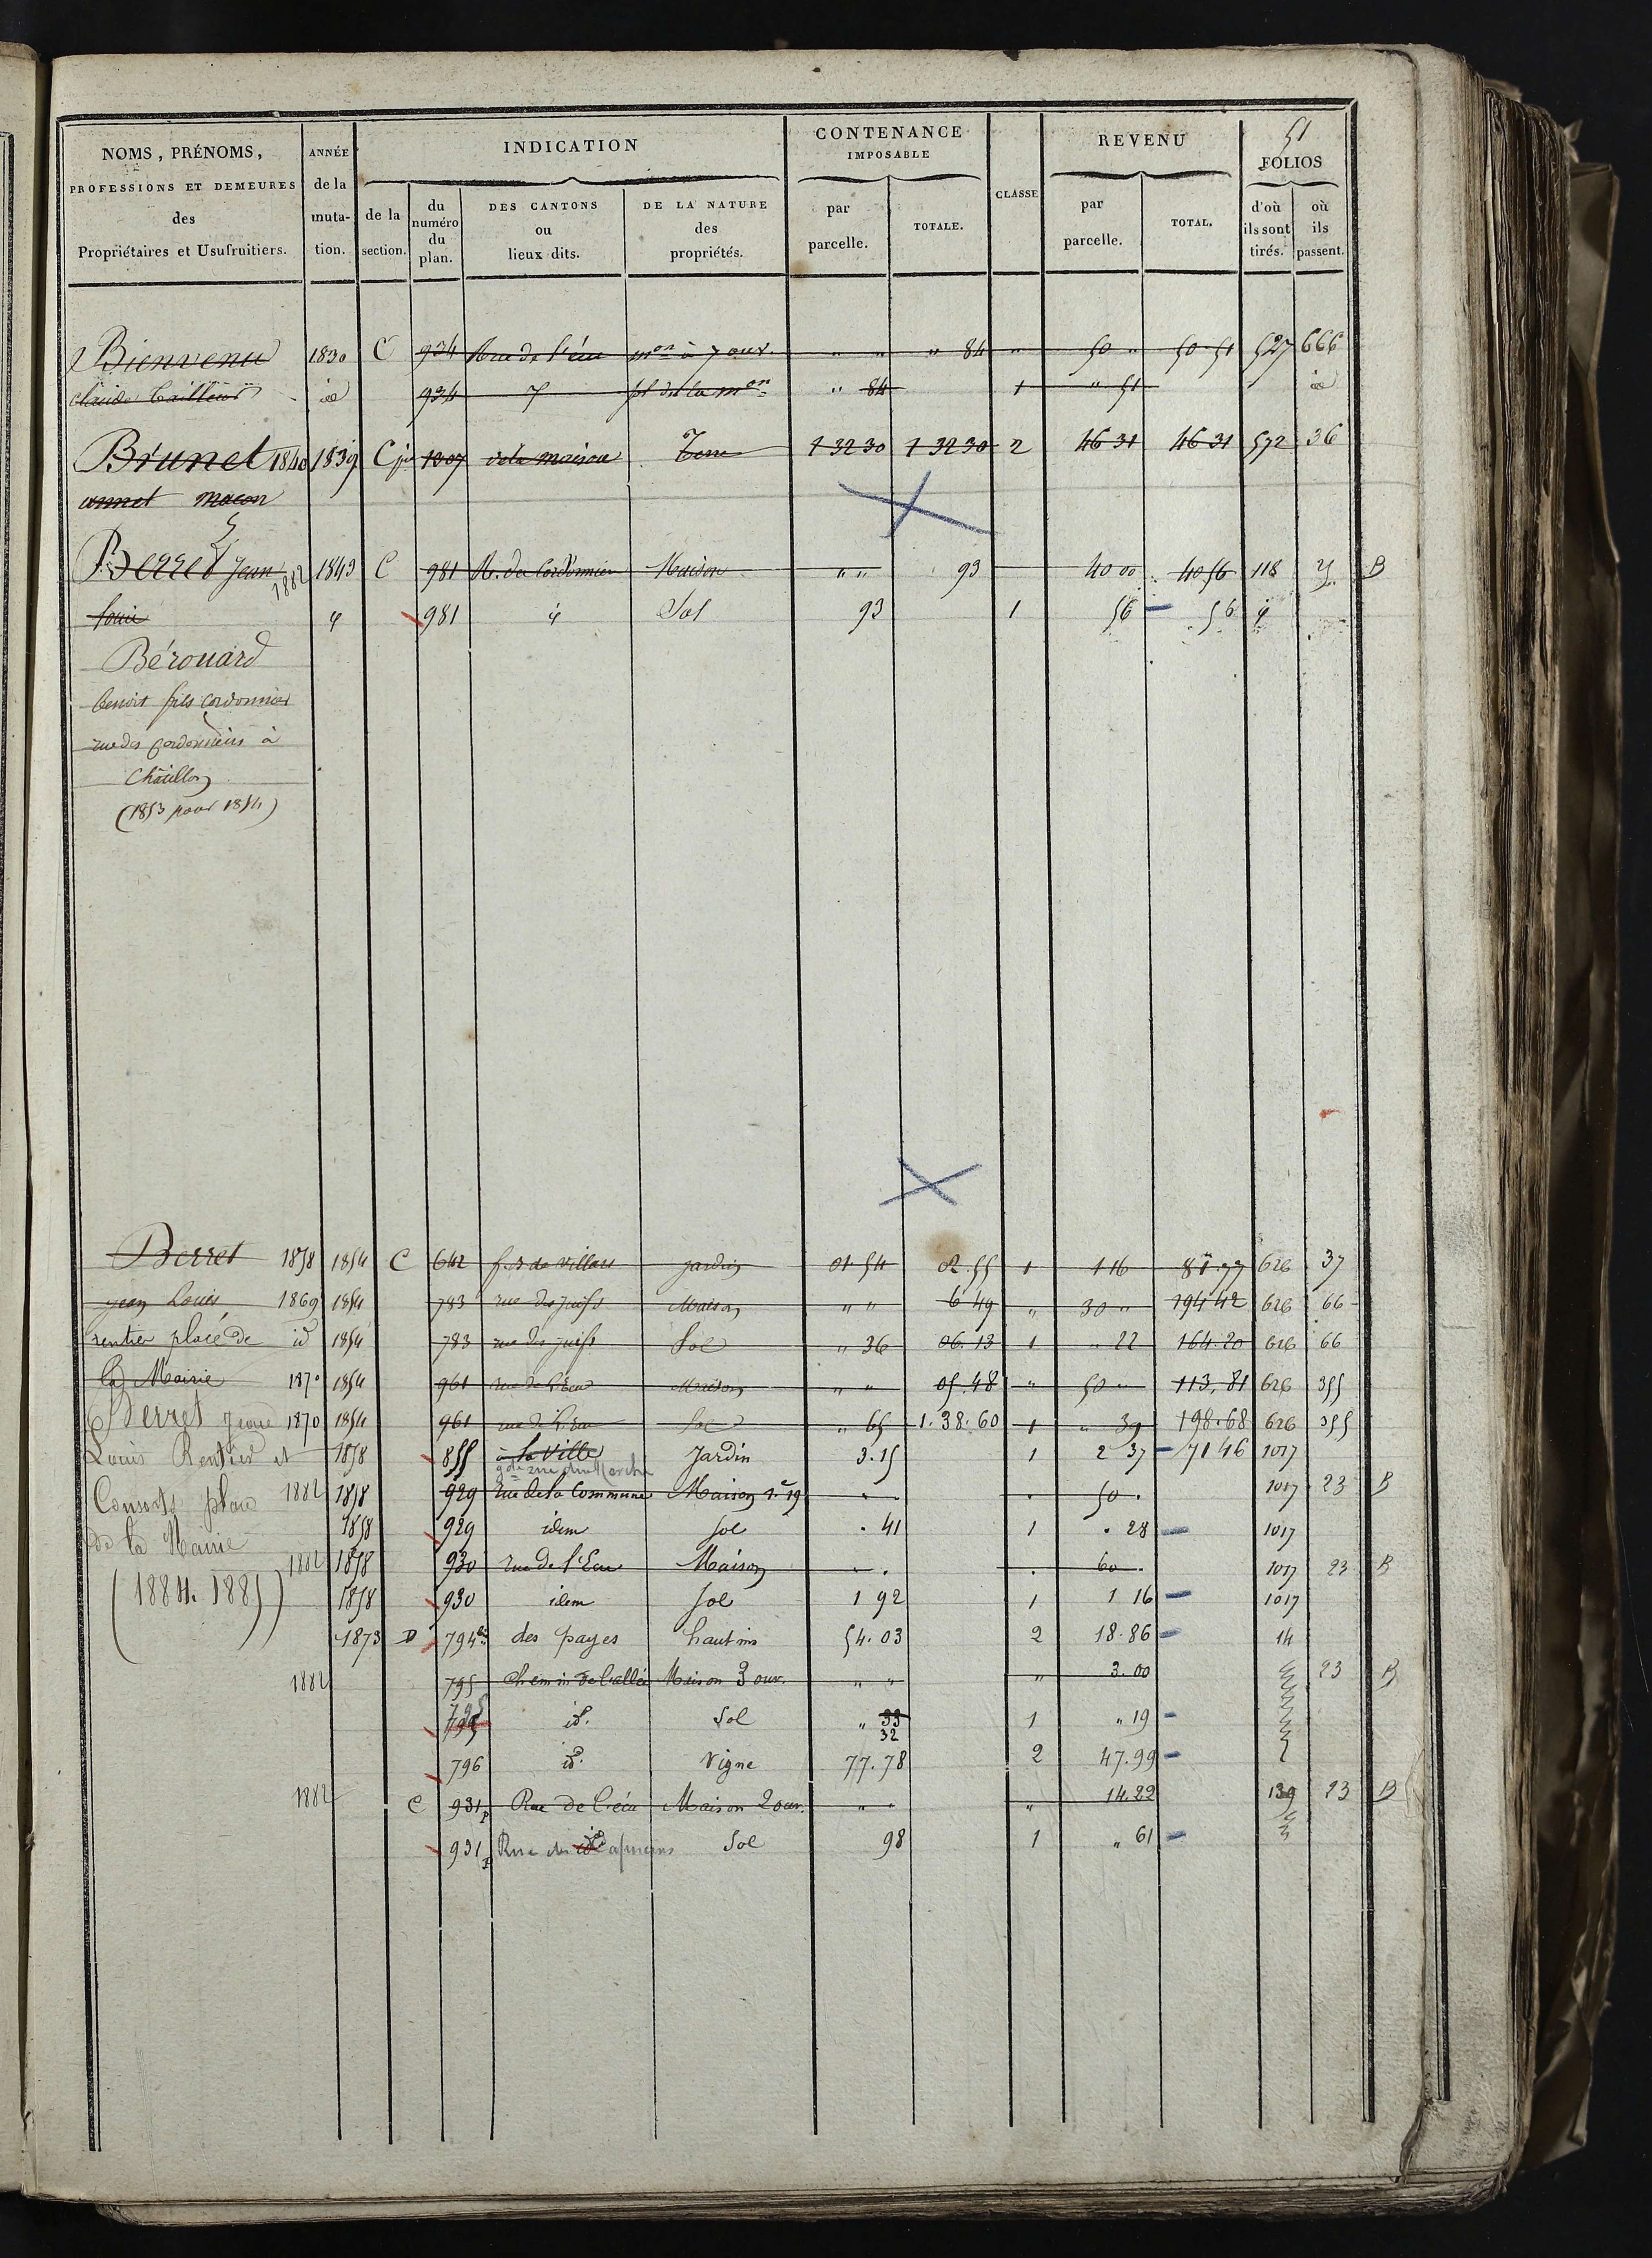 51
NOMS, PRÉNOMS, PROFESSIONS ET DEMEURES des Propriétaires et Usufruitiers. ANNÉE de la mutation. INDICATION de la section. du numéro du plan. DES CANTONS ou lieux dits. DE LA NATURE des propriétés. CONTENANCE IMPOSABLE par parcelle. TOTALE. CLASSE REVENU par parcelle. TOTAL. FOLIOS d'où ils sont tirés. où ils passent.
Bienvenu 1830 C 934 Rue de l'écu mon à 7 ouv. " " " 84 " 50 " 50 51 527 666
claude tailleur id 934 sol de la mon " 84 1 " 51 id
Brunet 1840 1839 C 1007 de la maison Terre 1 32 30 1 32 30 2 46 31 46 31 572 36
annet macon
Berret Jean 1882 1843 C 981 R. des Cordonniers Maison " " 93 40 00 40 56 118 B
louis 981 Sol 93 1 56 56
Bérouard
benoit fils cordonnier
rue des cordonniers à
Châtillon
(1853 pour 1854)
Berret 1858 1854 C 642 f.s de villars jardin 01 54 02.55 1 1 16 81.77 626 37
jean Louis 1869 1854 783 rue des juifs Maison " " 6 49 " 30 " 194 42 626 66
rentier place de id 1854 783 rue des juifs Sol " 36 06.13 1 " 22 164.20 626 66
la Mairie 1870 1854 961 rue de l'Ecu Maison " " 05.48 " 50 " 113,81 626 355
Berret Jean 1870 1854 961 rue de l'Ecu Sol " 65 1.38.60 1 " 39 198.68 626 355
Louis Rentier et 1858 855 à la Ville Jardin 3.15 1 2 37 71 46 1017
gde rue du Marché
Consorts place 1882 1858 929 rue de la Commune Maison 50 . 1017 23 B
de la Mairie 1858 929 idem Sol . 41 1 . 28 1017
1882 1858 930 rue de l'Ecu Maison . . . 60 . 1017 23 B
(1884.1885) 1858 930 idem Sol 1 92 1 1 16 1017
1873 D 794 des payes hautins 54.03 2 18.86 14
1882 795 Chemin de Maison 3 ouv. " " " 3.00 23 B
795 id. Sol " 33 1 " 19
32
796 id. Vigne 77.78 2 47.99
1882 C 931p Rue de l'écu Maison 2 ouv. " " " 14.22 139 23 B
931p Rue des id Capucins Sol 98 1 " 61